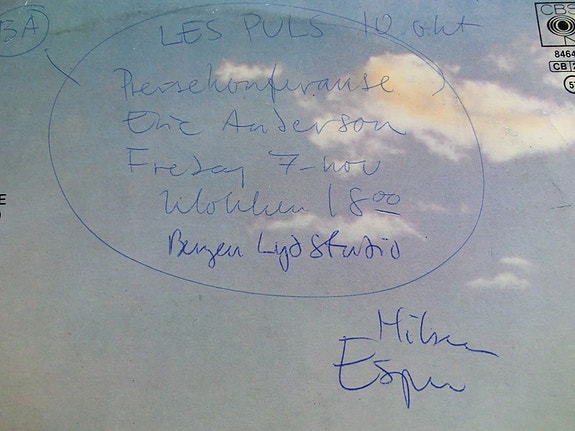 BA
LES PULS 10 okt
CBS
8464
CB
Pressekonferanse
Eric Anderson
Fredag 7-nov
Klokken 18 00
Bergen Lyd Studio
E
Hilsen
Espen